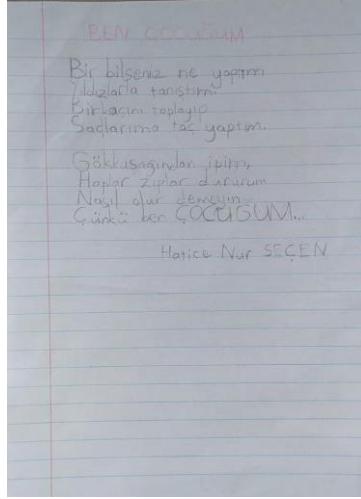 BEN ÇOCUĞUM
Bir bilseniz ne yaptım
Yıldızlarla tanıştım.
Birkaçını toplayıp
Saçlarıma taç yaptım.
Gökkuşağından ipim,
Hoplar zıplar dururum
Nasıl olur demeyin
Çünkü ben ÇOCUĞUM...
Hatice Nur SEÇEN